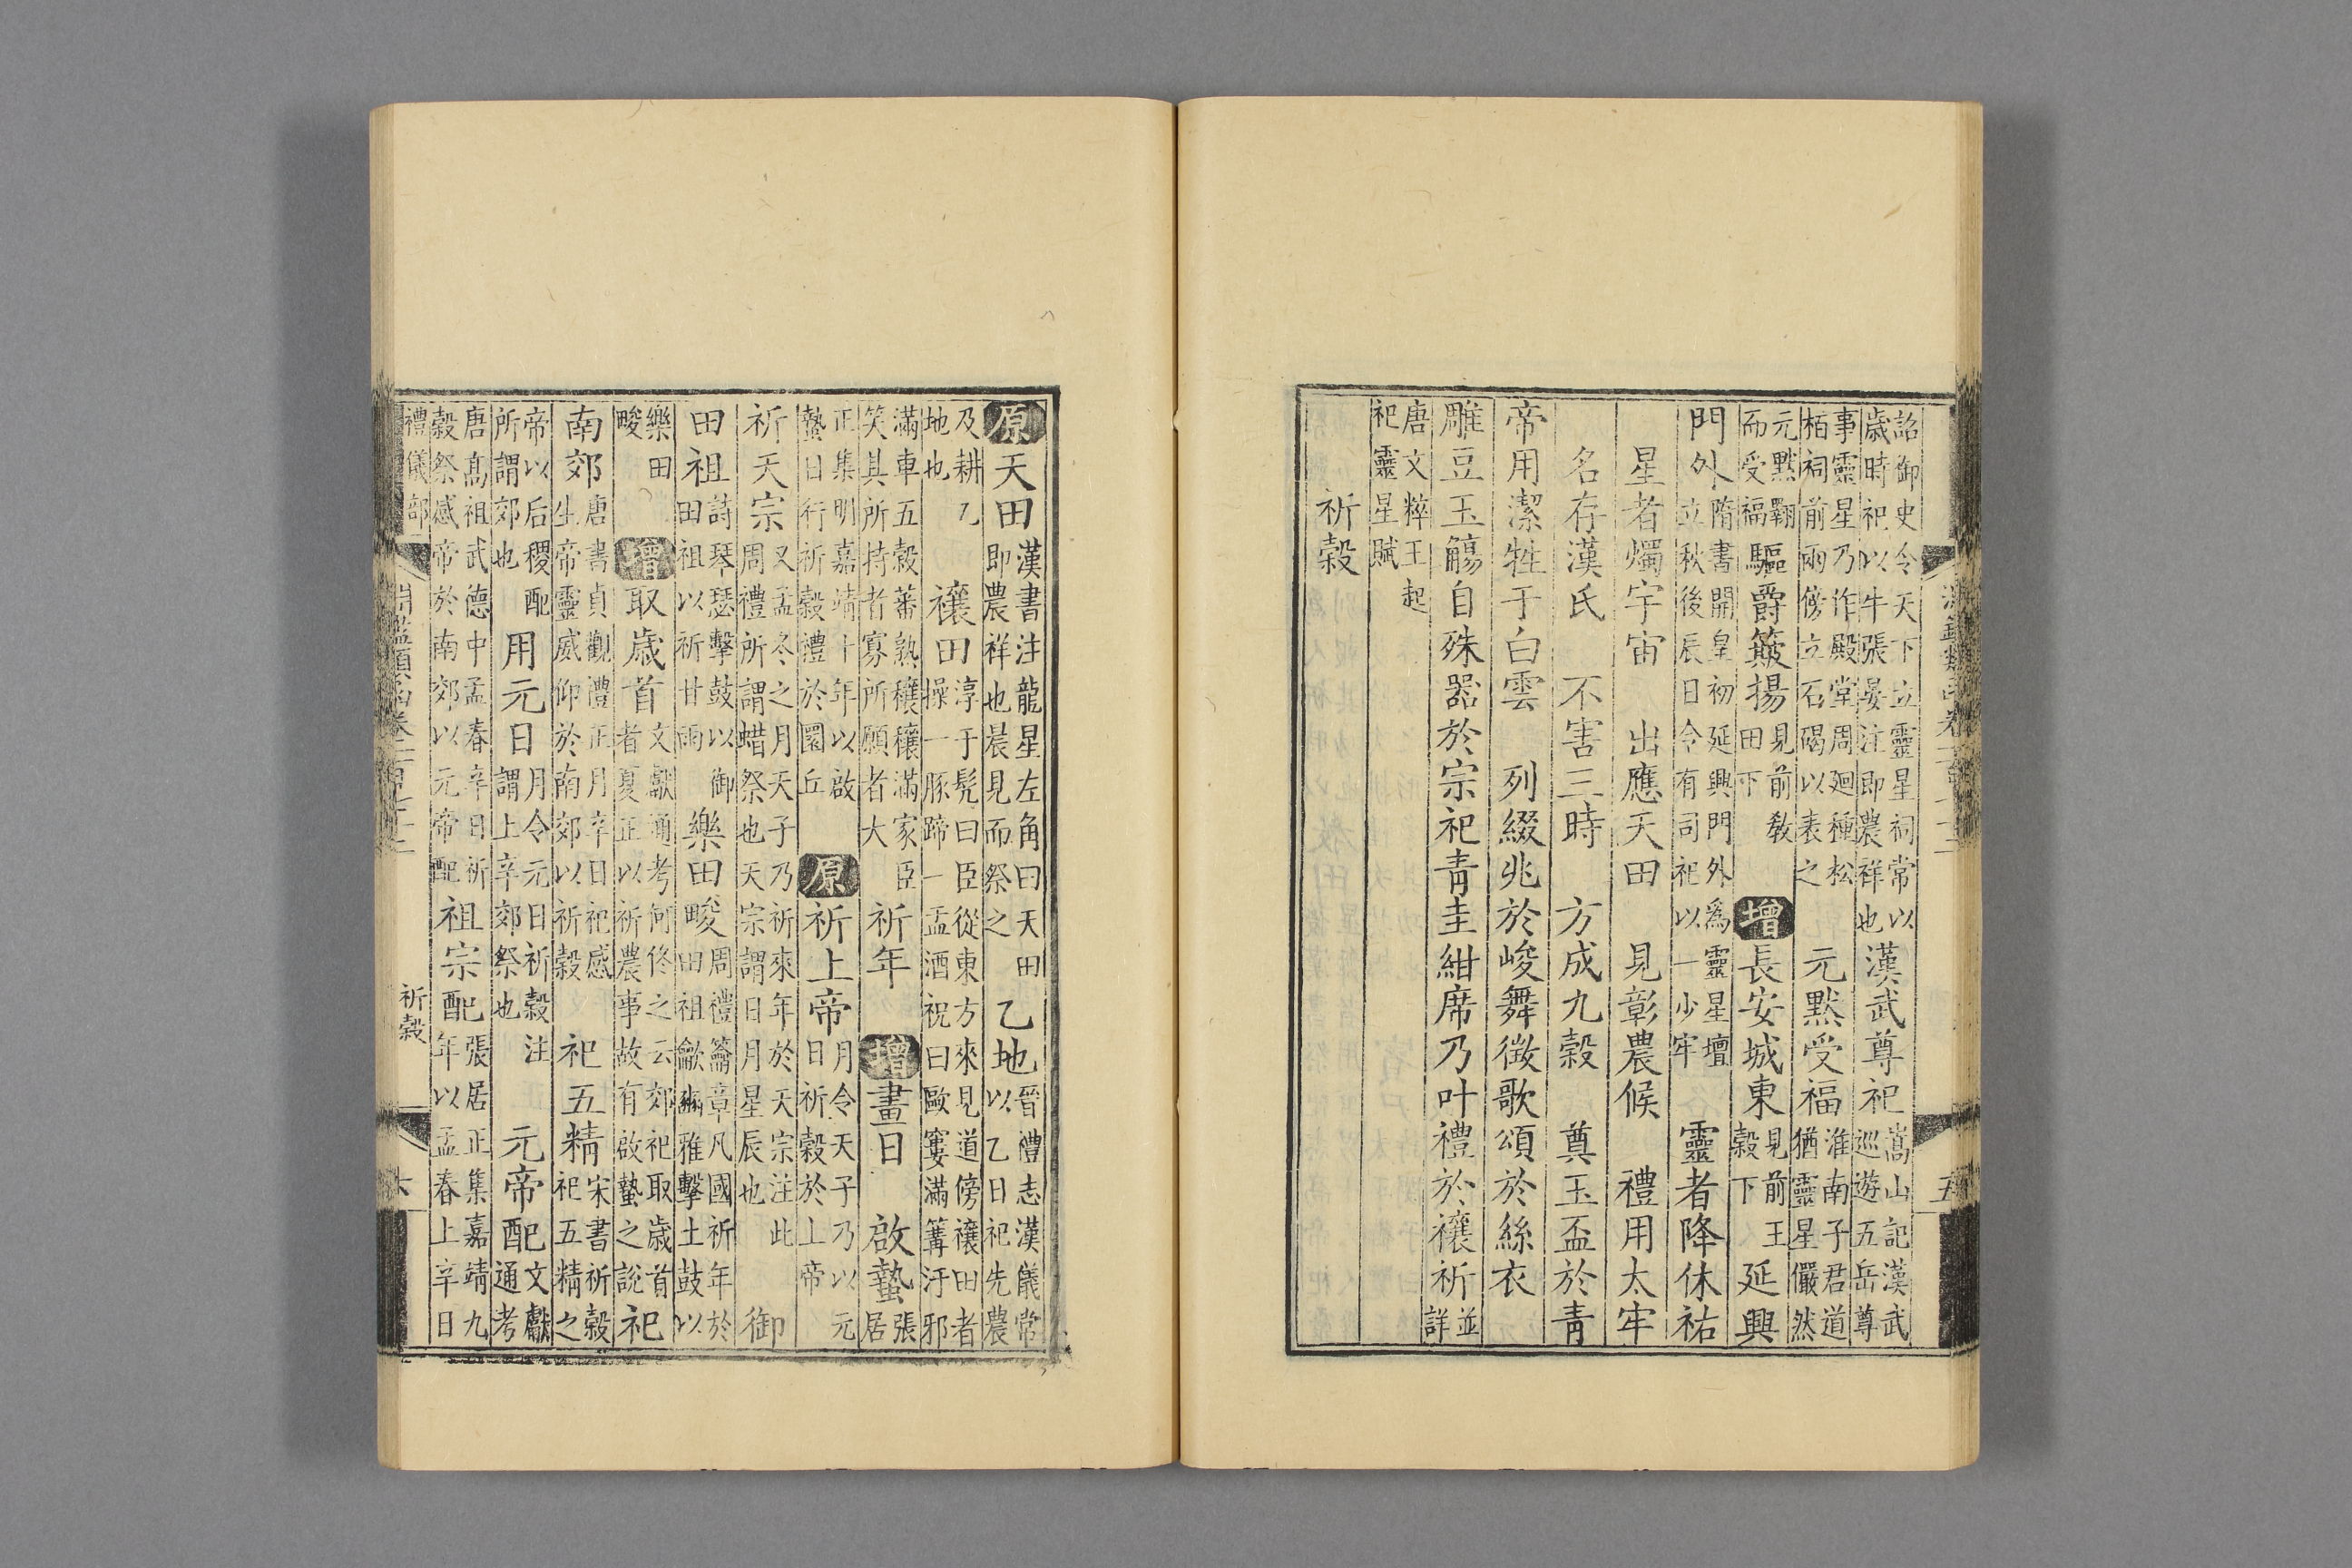 詔御史令天下立靈星祠常以
歳時祀以牛張晏注即農祥也
漢武尊祀
嵩山記漢武
巡遊五岳尊
事靈星乃作殿堂周廻種松
栢祠前兩傍立石碣以表之
元黙受福
淮南子君道
猶靈星儼然
元黙翺
而受福
驅爵簸揚
見前敎
田下
增長安城東
見前王
穀下
延興
門外
隋書開皇初延興門外爲靈星壇
立秋後辰日令有司祀以一少牢
靈者降休祐
星者燭宇宙　出應天田　見彰農候　禮用太牢
名存漢氏　不害三時　方成九穀　奠玉盃於靑
帝用潔牲于白雲　列綴兆於峻舞徴歌頌於絲衣
雕豆玉觴自殊器於宗祀靑圭紺席乃叶禮於禳祈
並
詳
唐文粹王起
祀靈星賦
祈穀
原天田
漢書注龍星左角曰天田
即農祥也晨見而祭之
乙地
晉禮志漢儀常
以乙日祀先農
及耕乙
地也
禳田
淳于髡曰臣從東方來見道傍禳田者
操一豚蹄一盂酒祝曰甌窶滿篝汙邪
滿車五穀蕃熟穰穰滿家臣
笑其所持者寡所願者大
祈年
增晝日　啟蟄
張
居
正集明嘉靖十年以啟
蟄日行祈穀禮於圜丘
原祈上帝
月令天子乃以元
日祈穀於上帝
祈天宗
又孟冬之月天子乃祈來年於天宗注此
周禮所謂蜡祭也天宗謂日月星辰也
御
田祖
詩琴瑟擊鼓以御
田祖以祈甘雨
樂田畯
周禮籥章凡國祈年於
田祖龡豳雅擊土鼓以
樂田
畯
增取歳首
文獻通考何休之云郊祀取歳首
者夏正以祈農事故有啟蟄之說
祀
南郊
唐書貞觀禮正月辛日祀感
生帝靈威仰於南郊以祈穀
祀五精
宋書祈穀
祀五精之
帝以后稷配
所謂郊也
用元日
月令元日祈穀注
謂上辛郊祭也
元帝配
文獻
通考
唐髙祖武德中孟春辛日祈
穀祭感帝於南郊以元帝配
祖宗配
張居正集嘉靖九
年以孟春上辛日
禮儀部
祈穀